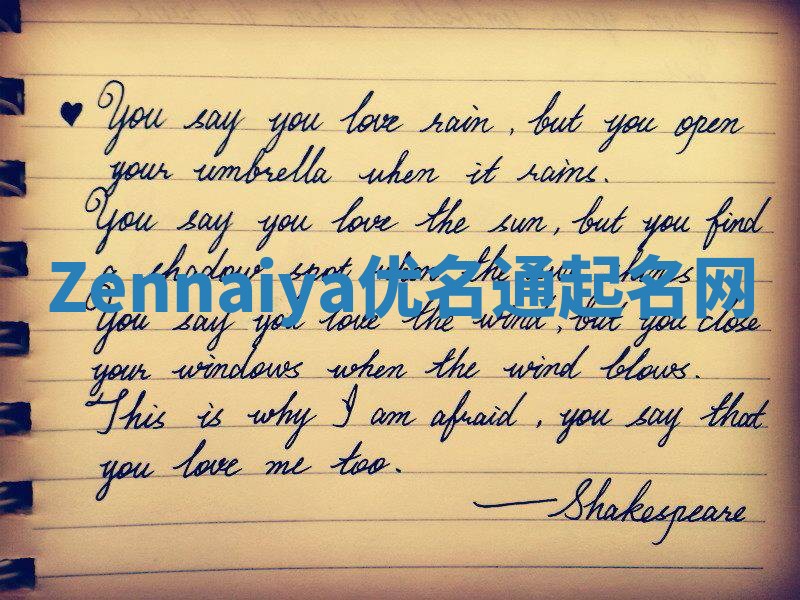 ♥ You say you love rain, but you open
your umbrella when it rains.
You say you love the sun, but you find
a shadow spot when the sun shines
Zennaiya优名通起名网
You say you love the wind, but you close
your windows when the wind blows.
This is why I am afraid, you say that
you love me too.
—Shakespeare